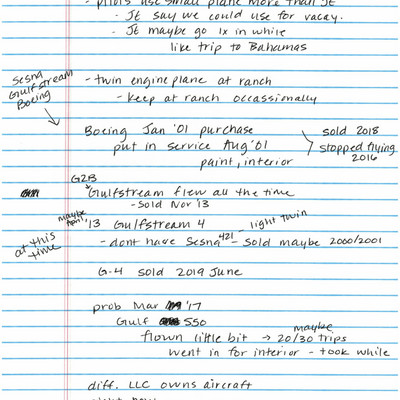 - pilots use small plane more than JE
- JE say we could use for vacay.
- JE maybe go 1x in while
like trip to Bahamas
Sesna
Gulfstream
Boeing
- twin engine plane at ranch
- keep at ranch occassionally
Boeing Jan '01 purchase
put in service Aug '01
paint, interior
sold 2018
stopped flying
2016
G2B
Gulfstream flew all the time
- sold Nov '13
maybe
April '13 Gulfstream 4 - light twin
at this
time
- dont have Sesna 421 - sold maybe 2000/2001
G-4 sold 2019 June
prob Mar '17
Gulf 550
flown little bit → maybe 20/30 trips
went in for interior - took while
diff. LLC owns aircraft